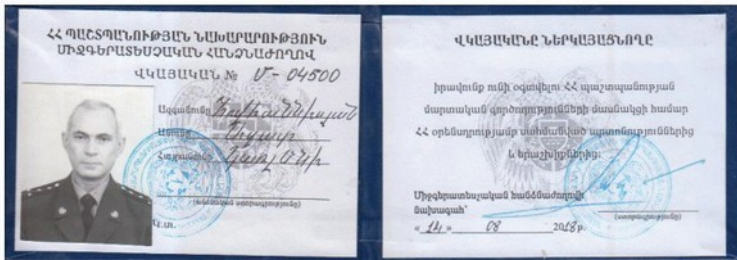 ՀՀ ՊԱՇՏՊԱՆՈՒԹՅԱՆ ՆԱԽԱՐԱՐՈՒԹՅՈՒՆ
ՄԻՋԳԵՐԱՏԵՍՉԱԿԱՆ ՀԱՆՁՆԱԺՈՂՈՎ
ՎԿԱՅԱԿԱՆ № Մ-04500
Ազգանունը
Անունը
Հայրանունը
Կ.Տ.
ՎԿԱՅԱԿԱՆԸ ՆԵՐԿԱՅԱՑՆՈՂԸ
իրավունք ունի օգտվելու ՀՀ պաշտպանության
մարտական գործողությունների մասնակցի համար
ՀՀ օրենսդրությամբ սահմանված արտոնություններից
և երաշխիքներից:
Միջգերատեսչական հանձնաժողովի
նախագահ՝
(ստորագրությունը)
« 14 » 08 2018թ.